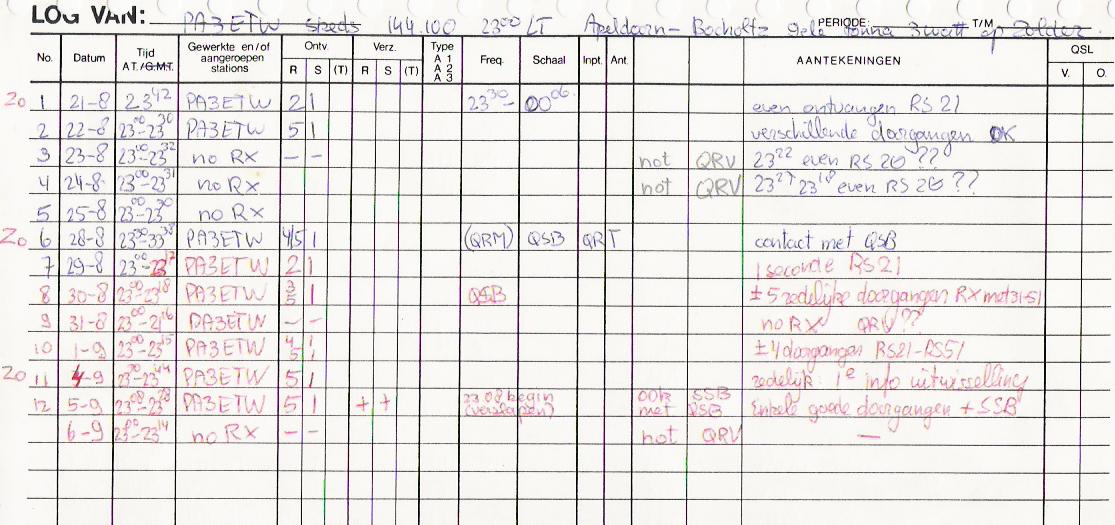 LOG VAN: PA3ETW steeds 144.100 23⁰⁰ LT Apeldoorn - Bocholtz gele 3 watt op Zolder PERIODE: T/M
No. Datum Tijd A.T./G.M.T. Gewerkte en/of aangeroepen stations Ontv. R S (T) Verz. R S (T) Type A 1 A 2 A 3 Freq. Schaal Inpt. Ant. AANTEKENINGEN QSL V. O.
Zo 1 21-8 23⁴² PA3ETW 2 1 23³⁰- 00⁰⁶ even ontvangen RS 21
2 22-8 23⁰⁰-23³⁰ PA3ETW 5 1 verschillende doorgangen OK
3 23-8 23⁰⁰-23³² no RX - - not QRV 23²² even RS 20 ??
4 24-8 23⁰⁰-23³¹ no RX not QRV 23¹⁸ even RS 20 ??
5 25-8 23⁰⁰-23³⁰ no RX
Zo 6 28-8 PA3ETW 4/5 1 (QRM) QSB QRT contact met QSB
7 29-8 23⁰⁰-23¹⁷ PA3ETW 2 1 1 seconde RS21
8 30-8 23⁰⁰-23¹⁸ PA3ETW 3/5 1 QSB ± 5 redelijke doorgangen RX met 31-51
9 31-8 23⁰⁰-2¹⁶ PA3ETW - - no RX QRV ??
10 1-9 23⁰⁰-23¹⁵ PA3ETW 4/5 1/1 ± 4 doorgangen RS21-RS51
Zo 11 4-9 PA3ETW 5 1 redelijk: 1e info uitwisselling
12 5-9 23⁰⁸-23²⁸ PA3ETW 5 1 + + 23.08 begin (verslapen) ook SSB met QSB Enkele goede doorgangen + SSB
6-9 23⁰⁰-23¹⁴ no RX - - not QRV —